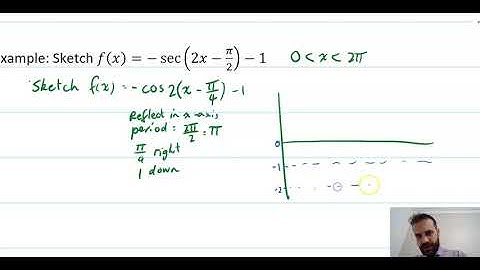 xample: Sketch f(x) = − sec(2x − π/2) − 1 0 < x < 2π
Sketch f(x) = -cos 2(x - π/4) - 1
Reflect in x-axis
period: 2π/2 = π
π/4 right
1 down
0
-1
-2